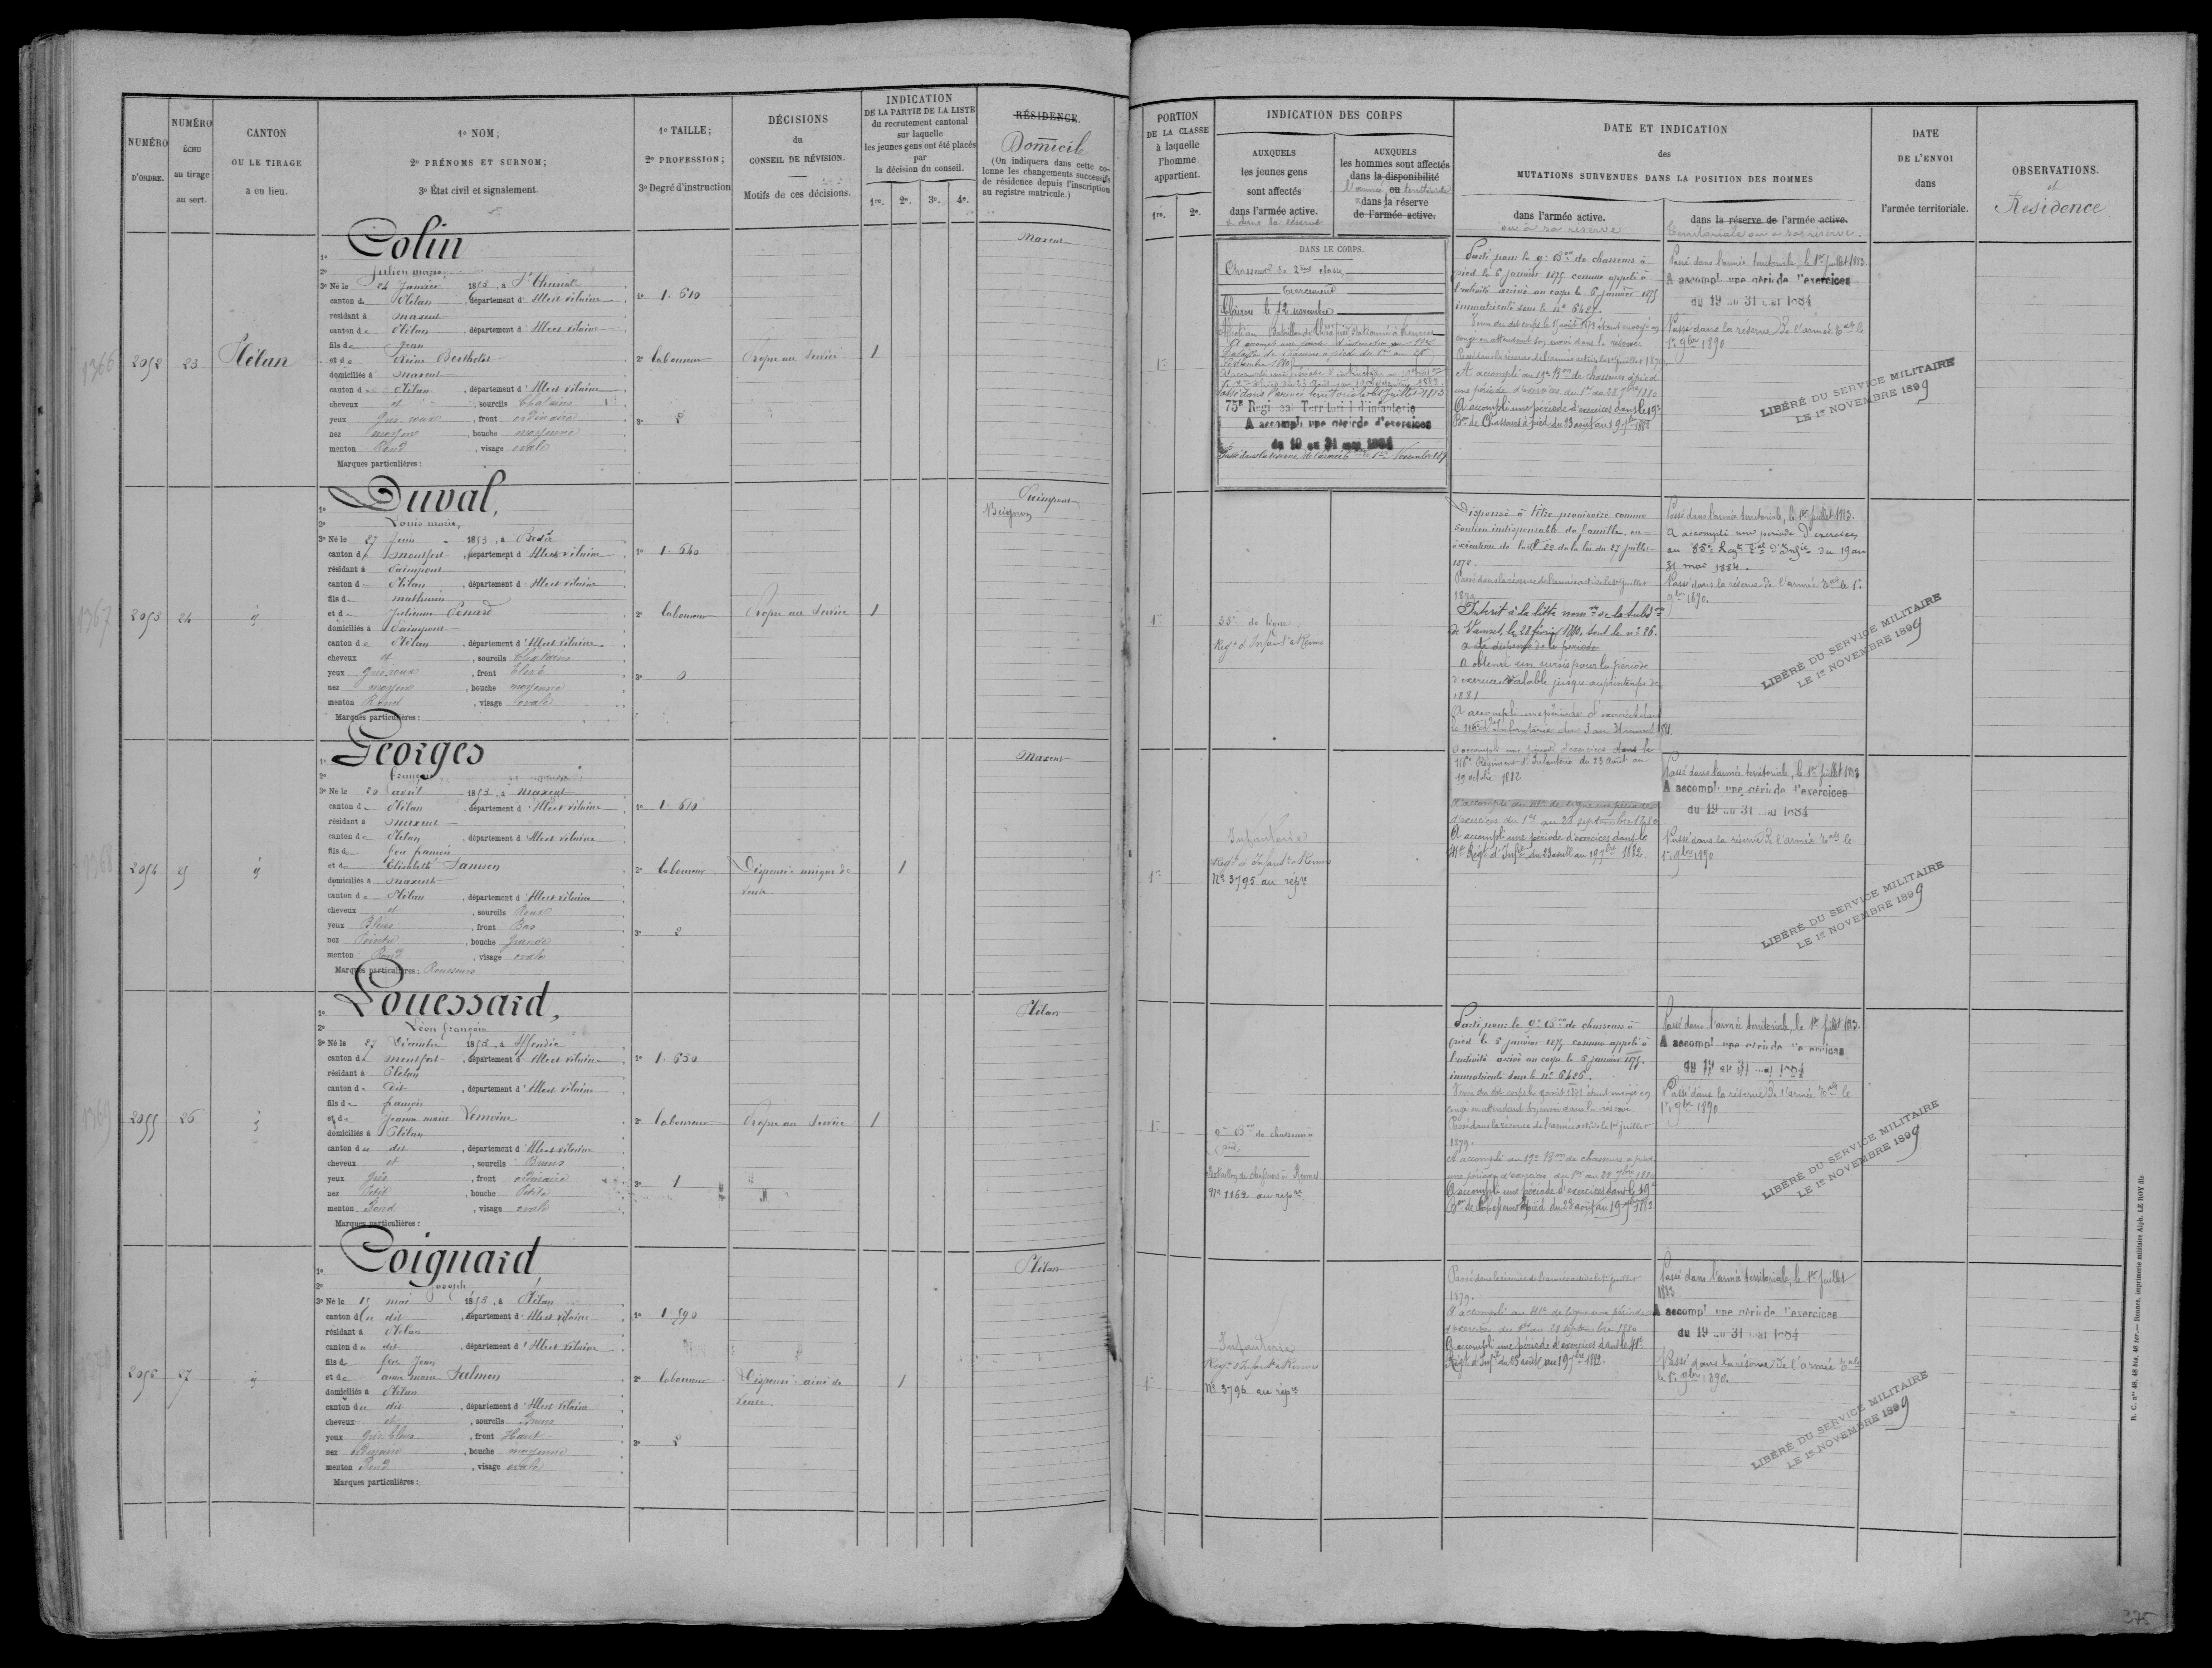 NUMÉRO D'ORDRE.
NUMÉRO ÉCHU au tirage au sort.
CANTON OU LE TIRAGE a eu lieu.
1º NOM;
2º PRÉNOMS ET SURNOM;
3º État civil et signalement.
1º TAILLE;
2º PROFESSION;
3º Degré d'instruction
DÉCISIONS
du
CONSEIL DE RÉVISION.
Motifs de ces décisions.
INDICATION
DE LA PARTIE DE LA LISTE
du recrutement cantonal
sur laquelle
les jeunes gens ont été placés
par
la décision du conseil.
1re. 2e. 3e. 4e.
RÉSIDENCE.
Domicile
(On indiquera dans cette co-
lonne les changements successifs
de résidence depuis l'inscription
au registre matricule.)
1366
2052
23
Plélan
1º Colin
2º Julien marie
3º Né le 24 Janvier 1853, à St Thurial
canton de Plélan, département d'Ille et Vilaine
résidant à Maxent
canton de Plélan, département d'Ille et Vilaine
fils de Jean
et de Berthelot
domiciliés à Maxent
canton de Plélan, département d'Ille et Vilaine
cheveux et, sourcils Chatains
yeux Gris roux, front ordinaire
nez moyen, bouche moyenne
menton Rond, visage ovale
Marques particulières:
1º 1.610
2º laboureur
3º 2
Propre au Service
1
Maxent
1367
2053
24
1º Duval,
2º Louis marie,
3º Né le 27 Juin 1853, à Bedée
canton de Montfort, département d'Ille et Vilaine
résidant à Paimpont
canton de Plélan, département d'Ille et Vilaine
fils de mathurin
et de Julienne Penard
domiciliés à Paimpont
canton de Plélan, département d'Ille et Vilaine
cheveux et, sourcils Chatains
yeux Gris roux, front Elevé
nez moyen, bouche moyenne
menton Rond, visage ovale
Marques particulières:
1º 1.640
2º laboureur
3º 0
Propre au Service
1
Paimpont
Beignon
1368
2054
25
1º Georges
2º françois
3º Né le 20 avril 1853, à Maxent
canton de Plélan, département d'Ille et Vilaine
résidant à Maxent
canton de Plélan, département d'Ille et Vilaine
fils de feu francois
et de Elisabeth Samson
domiciliés à Maxent
canton de Plélan, département d'Ille et Vilaine
cheveux et, sourcils Roux
yeux Bleus, front Bas
nez Pointu, bouche grande
menton Rond, visage ovale
Marques particulières: Rousseurs
1º 1.610
2º laboureur
3º 2
Dispensé: unique de
veuve.
1
Maxent
1369
2055
26
1º Louessard,
2º Léon françois
3º Né le 27 Décembre 1853, à Iffendic
canton de Montfort, département d'Ille et Vilaine
résidant à Plélan
canton du dit, département d'Ille et Vilaine
fils de françois
et de Jeanne marie Lemoine
domiciliés à Plélan
canton du dit, département d'Ille et Vilaine
cheveux et, sourcils Bruns
yeux Gris, front ordinaire
nez Petit, bouche Petite
menton Rond, visage ovale
Marques particulières:
1º 1.630
2º laboureur
3º 1
Propre au Service
1
Plélan
2056
27
1º Coignard
2º Joseph
3º Né le 15 mai 1853, à Plélan
canton du dit, département d'Ille et Vilaine
résidant à Plélan
canton du dit, département d'Ille et Vilaine
fils de feu Jean
et de anne marie Salmon
domiciliés à Plélan
canton du dit, département d'Ille et Vilaine
cheveux et, sourcils Bruns
yeux Gris bleus, front Haut
nez ordinaire, bouche moyenne
menton Rond, visage ovale
Marques particulières:
1º 1.590
2º laboureur
3º 2
Dispensé: ainé de
veuve.
1
Plélan
PORTION
DE LA CLASSE
à laquelle
l'homme
appartient.
1re. 2e.
INDICATION DES CORPS
AUXQUELS
les jeunes gens
sont affectés
dans l'armée active.
ou dans la réserve
AUXQUELS
les hommes sont affectés
dans la disponibilité
ou
l'armée territoriale
dans la réserve
de l'armée active.
DATE ET INDICATION
des
MUTATIONS SURVENUES DANS LA POSITION DES HOMMES
dans l'armée active.
ou à sa réserve
dans la réserve de l'armée active.
territoriale ou à sa réserve.
DATE
DE L'ENVOI
dans
l'armée territoriale.
OBSERVATIONS.
et
Residence
1re
DANS LE CORPS.
Chasseur de 2ème classe
Clairon le 12 novembre
75e Régiment Territorial d'infanterie
A accompli une période d'exercices
du 19 au 31 mai 1884
Parti pour le 9e Bon de chasseurs à
pied le 6 janvier 1875 comme appelé à
l'activité arrivé au corps le 6 janvier 1875
immatriculé sous le nº 6427.
congé en attendant son envoi dans la réserve
Passé dans la réserve de l'armée active le 1er juillet 1879.
A accompli au 19e Bon de chasseurs à pied
une période d'exercices du 1er au 28 7bre 1880
A accompli une période d'exercices dans le 19e
Bon de Chasseurs à pied du 23 août au 19 7bre 1882
Passé dans l'armée territoriale, le 1er Juillet 1883.
A accompli une période d'exercices
du 19 au 31 mai 1884
Passé dans la réserve de l'armée tale le
1er 9bre 1890.
LIBÉRÉ DU SERVICE MILITAIRE
LE 1er NOVEMBRE 1899
1re
35e de ligne
Regt d'Infant à Rennes
Dispensé à titre provisoire comme
soutien indispensable de famille, en
exécution de l'art 22 de la loi du 27 juillet
1872.
Passé dans la réserve de l'armée active le 1er juillet
1879.
de Vannes, le 28 février 1880, sous le nº 26.
a été dispensé de la période
A obtenu un sursis pour la période
d'exercices valable jusqu'au printemps de
1881
A accompli une période d'exercices dans
A accompli une période d'exercices dans le
116e Régiment d'Infanterie du 23 Août au
19 octobre 1882
Passé dans l'armée territoriale, le 1er Juillet 1883.
A accompli une période d'exercices
au 85e Regt tal d'Infie du 19 au
31 mai 1884.
Passé dans la réserve de l'armée tale le 1er
9bre 1890.
LIBÉRÉ DU SERVICE MILITAIRE
LE 1er NOVEMBRE 1899
1re
Infanterie
Regt d'Infant à Rennes
Nº 3795 au répre
A accompli au 41e de ligne une période
d'exercices du 1er au 28 septembre 1880
A accompli une période d'exercices dans le
41e Régt d'Infie du 23 août au 19 7bre 1882.
Passé dans l'armée territoriale, le 1er Juillet 1883
A accompli une période d'exercices
du 19 au 31 mai 1884
Passé dans la réserve de l'armée tale le
1er 9bre 1890
LIBÉRÉ DU SERVICE MILITAIRE
LE 1er NOVEMBRE 1899
1re
9e Bon de chasseurs à
pied
Bataillon de chasseurs à Rennes
Nº 1162 au répre
Parti pour le 9e Bon de chasseurs à
pied le 6 janvier 1875 comme appelé à
l'activité arrivé au corps le 6 janvier 1875.
immatriculé sous le nº 6426.
congé en attendant son envoi dans la réserve
Passé dans la réserve de l'armée active le 1er juillet
1879.
A accompli au 19e Bon de chasseurs à pied
une période d'exercices du 1er au 28 7bre 1880
A accompli une période d'exercices dans le 19e
Bon de Chasseurs à pied du 23 août au 19 7bre 1882
Passé dans l'armée territoriale, le 1er Juillet 1883.
A accompli une période d'exercices
du 19 au 31 mai 1884
Passé dans la réserve de l'armée tale le
1er 9bre 1890
LIBÉRÉ DU SERVICE MILITAIRE
LE 1er NOVEMBRE 1899
1re
Infanterie
Regt d'Infant à Rennes
Nº 3796 au répre
Passé dans la réserve de l'armée active le 1er juillet
1879.
A accompli au 41e de ligne une période
d'exercices du 1er au 28 septembre 1880
A accompli une période d'exercices dans le 41e
Régt d'Infie du 23 août au 19 7bre 1882.
Passé dans l'armée territoriale, le 1er Juillet
1883.
A accompli une période d'exercices
du 19 au 31 mai 1884
Passé dans la réserve de l'armée tale
le 1er 9bre 1890.
LIBÉRÉ DU SERVICE MILITAIRE
LE 1er NOVEMBRE 1899
R. C. nos 40, 46 bis, 46 ter.— Rennes, imprimerie militaire Alph. LE ROY fils
375